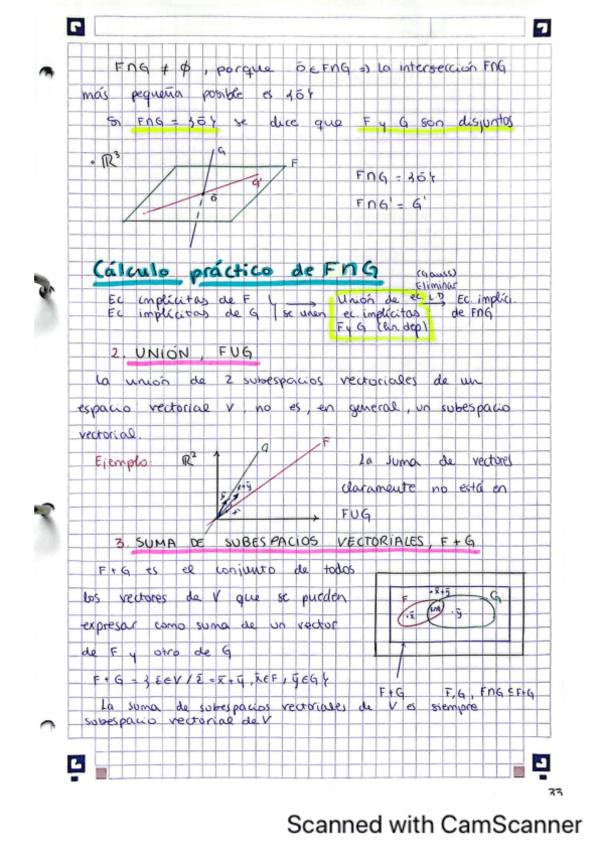 F∩G ≠ ∅, porque ō ∈ F∩G ⇒ la intersección F∩G
más pequeña posible es {ō}
Si F∩G = {ō} se dice que F y G son disjuntos
• ℝ³
G
F
G'
ō
F∩G = {ō}
F∩G' = G'
Cálculo práctico de F∩G
Ec implícitas de F
Ec implícitas de G
se unen
Unión de
ec. implícitas
F y G (lin dep)
(Gauss)
Eliminar
ec L D
Ec. implíci.
de F∩G
2. UNIÓN, FUG
La unión de 2 subespacios vectoriales de un
espacio vectorial V, no es, en general, un subespacio
vectorial.
Ejemplo:
ℝ²
G
F
x̄+ȳ
La suma de vectores
claramente no está en
FUG
3. SUMA DE SUBESPACIOS VECTORIALES, F+G
F+G es el conjunto de todos
los vectores de V que se pueden
expresar como suma de un vector
de F y otro de G
F+G = { z̄ ∈ V / z̄ = x̄+ȳ, x̄∈F, ȳ∈G }
F
G
• x̄+ȳ
• x̄
F∩G
• ȳ
F+G
F, G, F∩G ⊆ F+G
La suma de subespacios vectoriales de V es siempre
subespacio vectorial de V
33
Scanned with CamScanner